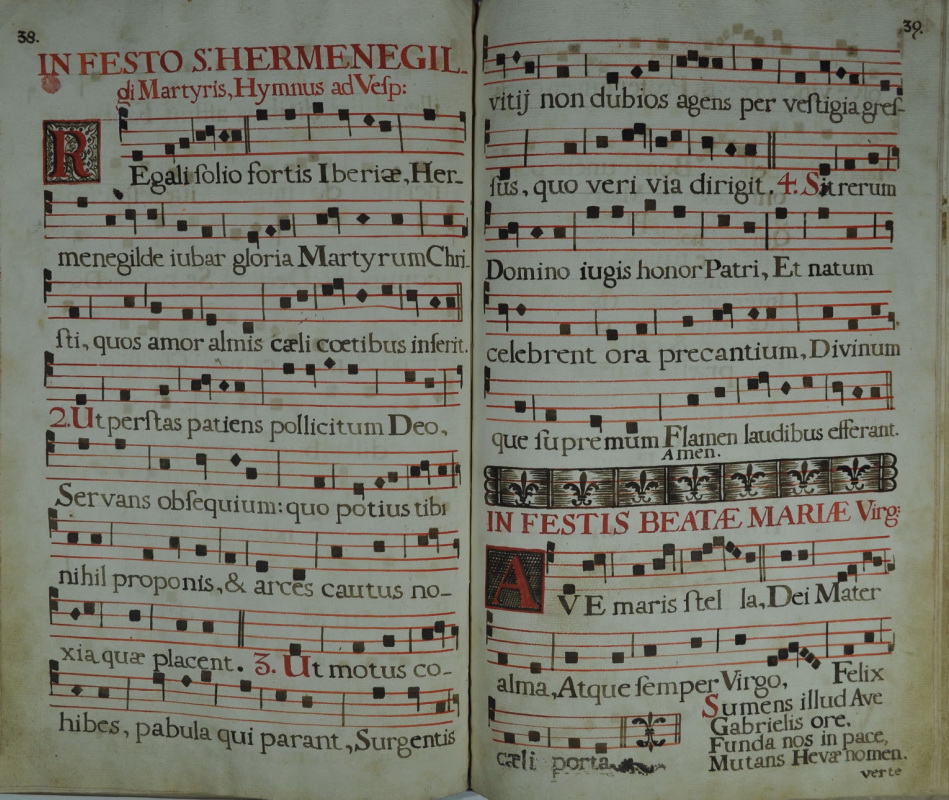 38.
IN FESTO S. HERMENEGIL-
di Martyris, Hymnus ad Vesp:
REgali solio fortis Iberiæ, Her-
menegilde iubar gloria Martyrum Chri-
sti, quos amor almis cæli coetibus inserit.
2. Ut perstas patiens pollicitum Deo,
Servans obsequium: quo potius tibi
nihil proponis, & arces cautus no-
xia quæ placent. 3. Ut motus co-
hibes, pabula qui parant, Surgentis
39.
vitij non dubios agens per vestigia gres-
sus, quo veri via dirigit. 4. Sit rerum
Domino iugis honor Patri, Et natum
celebrent ora precantium, Divinum
que supremum Flamen laudibus efferant.
Amen.
IN FESTIS BEATÆ MARIÆ Virg:
AVE maris stel la, Dei Mater
alma, Atque semper Virgo, Felix
cæli porta
Sumens illud Ave
Gabrielis ore.
Funda nos in pace,
Mutans Hevæ nomen.
verte